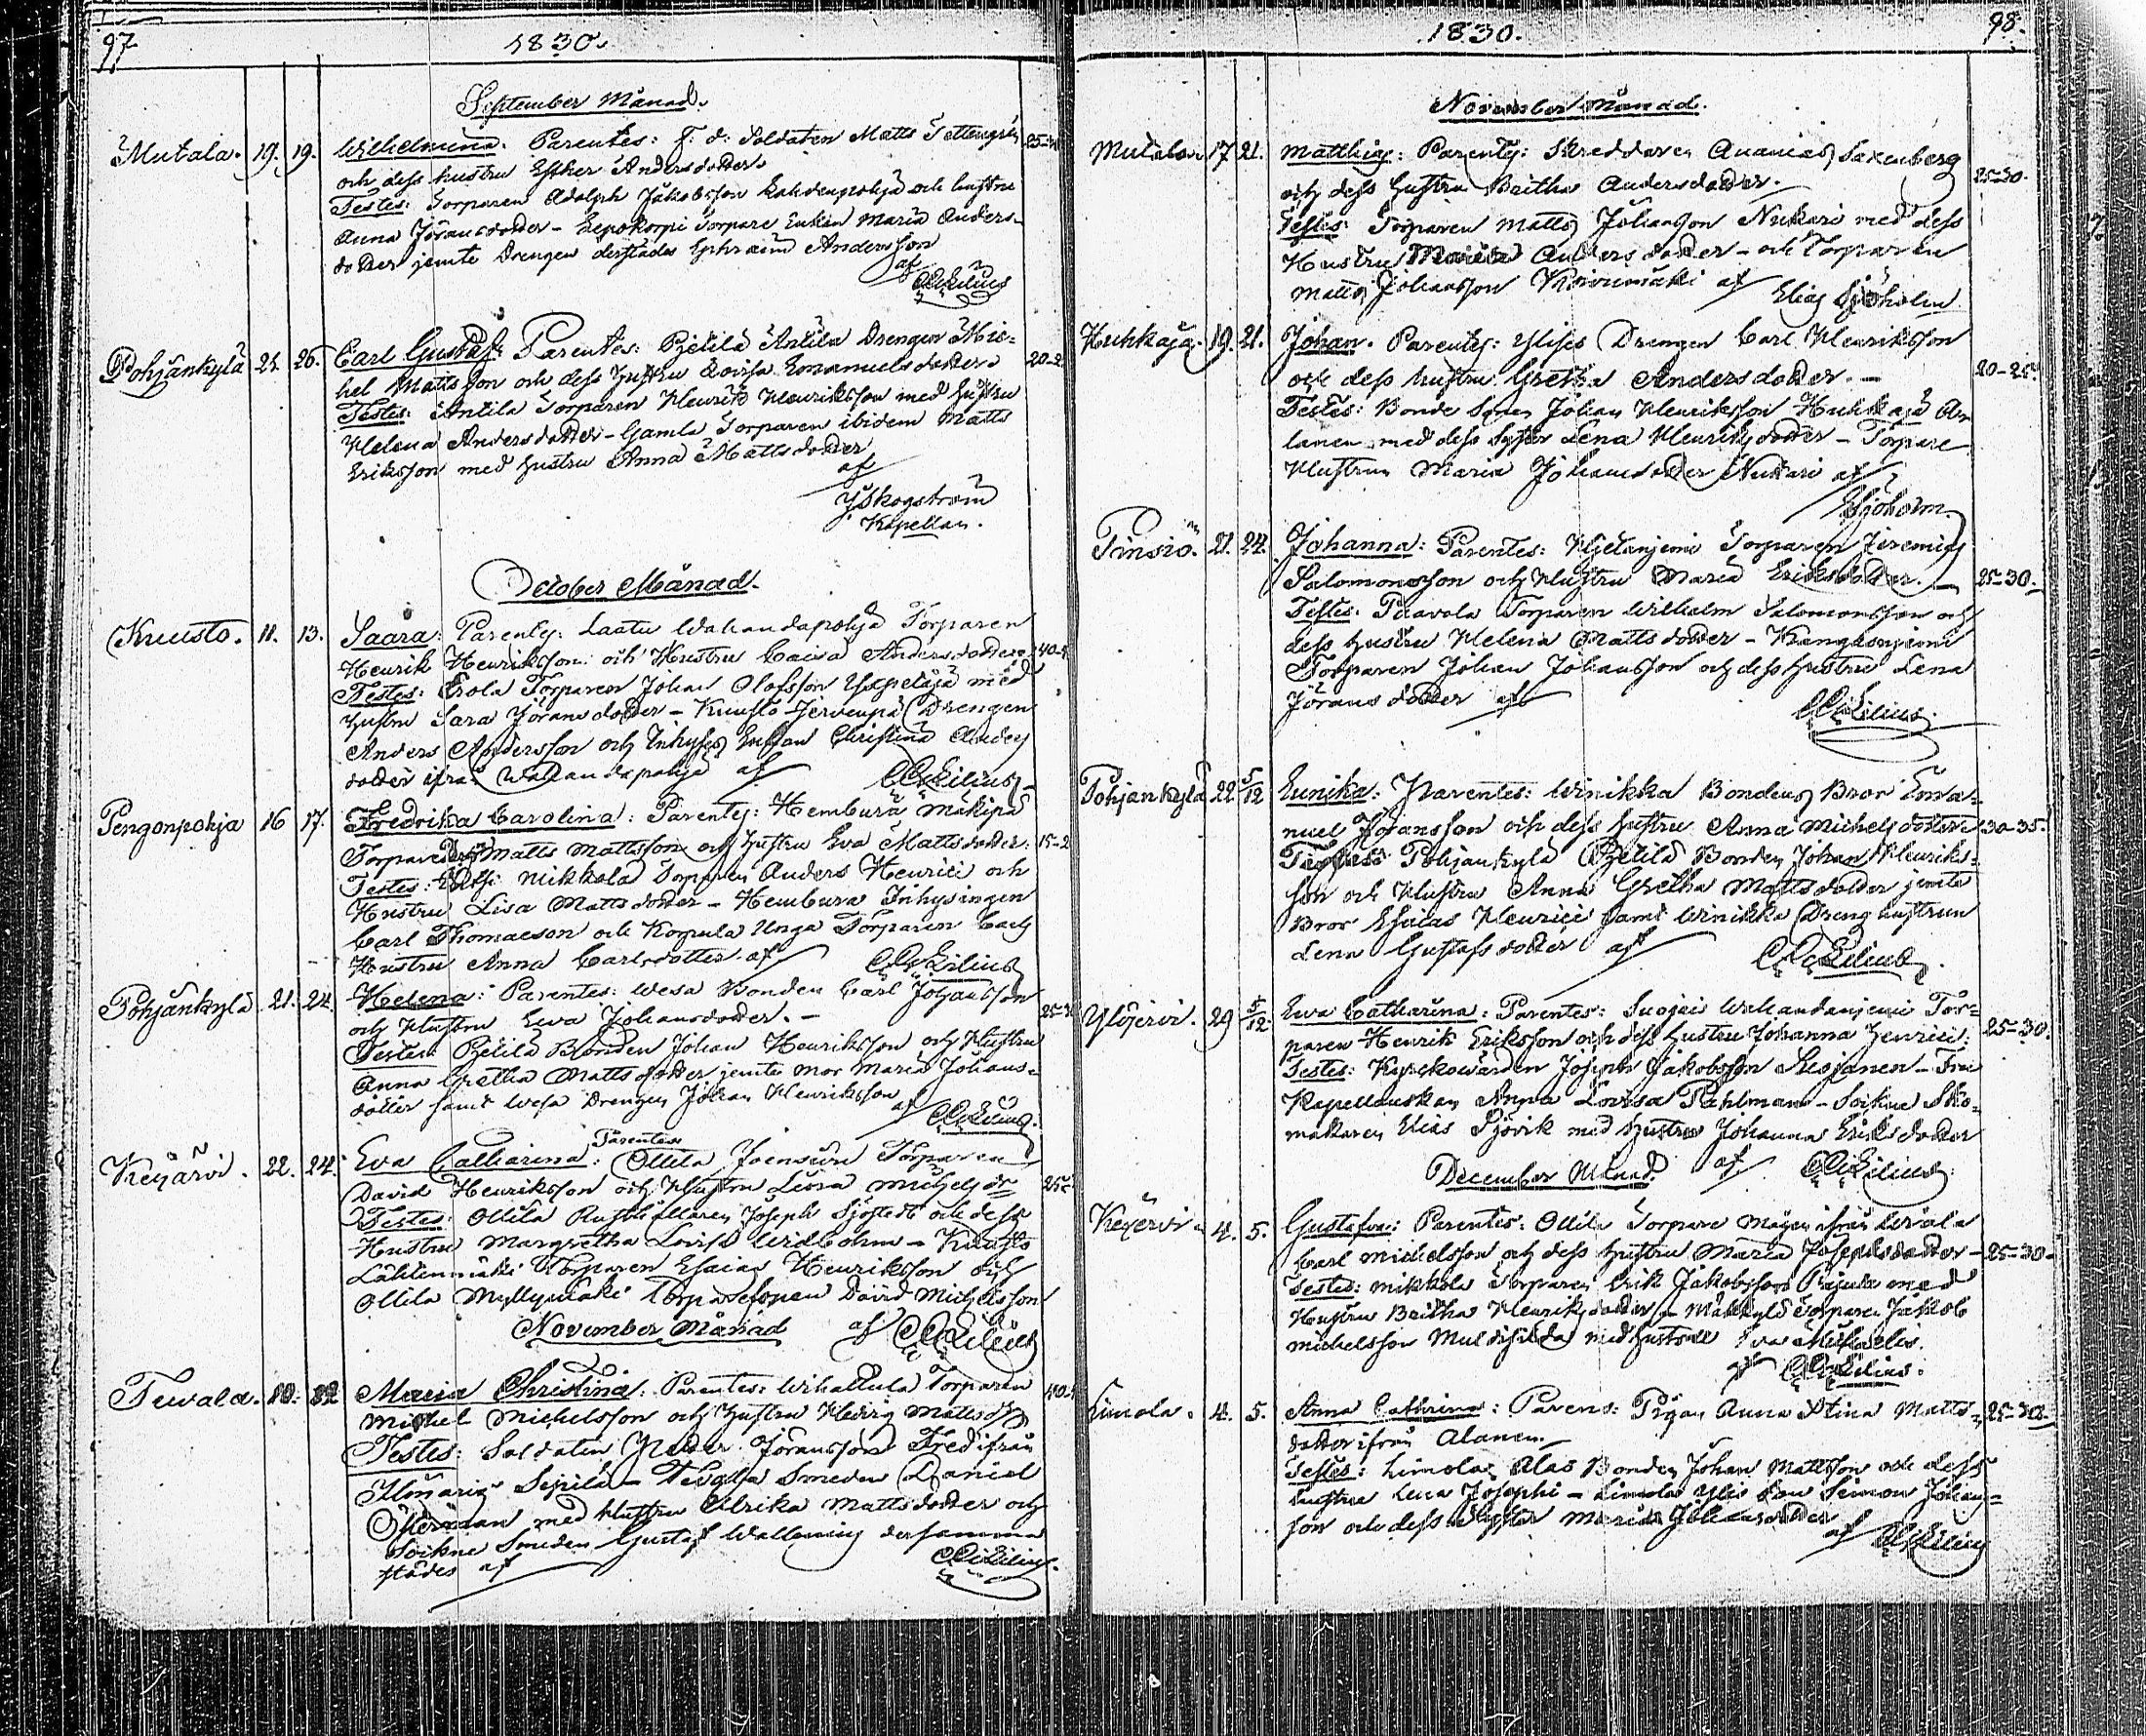 97 1830.
September Månad.
Mutala. 19. 19. Wilhelmina. Parentes: f. d. Soldaten Matts
och dess hustru Esther Andersdotter.
Testes: Torparen Adolph Jakobsson och hustru
Anna Jöransdotter - Lepokorpi Torpare Enkan Maria Anders-
dotter jemte Drengen derstädes Ephraim Andersson
af
CCekilius
Pohjankylä 26. Carl Gustaf: Parentes: Pietilä Antila Drengen Mic- 20-2
hel Mattsson och dess hustru Lovisa Emanuelsdotter.
Testes: Antila Torparen Henrik Henriksson med hustru
Helena Andersdotter - Gamla Torparen ibidem Matts
Eriksson med hustru Anna Mattsdotter
af
Skogström
Kapellan.
October Månad.
Kuusto. 11. 13. Saara: Parentes: Laatu Wahandapohja Torparen
Henrik Henriksson och Hustru Caisa Andersdotter. 40-
Testes: Erola Torparen Johan Olofsson med
hustru Sara Jöransdotter - Kuusto Jervenpä Drengen
Anders Andersson och Inhyses Enkan Christina Anders
dotter ifrån Wahandapohja af CCekilius
Pengonpohja 16 17. Fredrika Carolina: Parentes: Hembura Mäkipä
Torparen Matts Mattsson och hustru Eva Mattsdotter. 15-2
Testes: Mikkola Torparen Anders Henrici och
Hustru Lisa Mattsdotter - Hembura Inhysingen
Carl Thomasson och Korpula Unga Torparen Carls
Hustru Anna Carlsdotter af CCekilius
Pohjankylä 21. 24. Helena: Parentes: Wesa Bonden Carl Johansson
och Hustru Ewa Johansdotter. - 25-3
Testes: Pietilä Bonden Johan Henriksson och Hustru
Anna Gretha Mattsdotter jemte mor Maria Johans-
dotter samt Wesa Drengen Johan Henriksson
af CCekilius.
Keijärvi. 22. 24. Eva Catharina: Parentes: Ollila Joensuu Torparen
David Henriksson och Hustru Lisa Michelsdr 25-
Testes: Ollila Rusthållaren Joseph Sjöstedt och dess
Hustru Margretha Lovisa Widbohm - Kuusto
Lähtenmäki Torparen Esaias Henriksson och
Ollila Myllymäki Torparesonen David Michelsson
November Månad af CCekilius
Tevala. 10. 12 Maria Christina: Parentes: Wihattula Torparen 40-
Michel Michelsson och hustru Hedvig Mattsdr
Testes: Soldaten Peter Jöransson Fred ifrån
Ilmaris Sepilä - Tevala Smeden Daniel
Österman med Hustru Ulrika Mattsdotter och
Sockne Smeden Gustaf Wallening dersamma
städes af CCekilius.
1830. 98.
November Månad.
Mutala. 17 21. Matthias: Parentes: Skreddaren Ananias Saxenberg
och dess hustru Britha Andersdotter. 25-30.
Testes: Torparen Matts Johansson Nukari med dess
Hustru Maria Andersdotter - och Torparen
Matts Johansson Koivumäki af Elias Sjöholm
Huhkaja. 19. 21. Johan. Parentes: Ylises Drengen Carl Henriksson
och dess hustru Gretha Andersdotter. - 20-25.
Testes: Bonde Sonen Johan Henriksson Huhkaja Ala
lanen med dess Syster Lena Henriksdotter - Torpare
Hustrun Maria Johansdotter Nukari af
Sjöholm.
Pinsiö. 21. 24. Johanna: Parentes: Hietaniemi Torparen Jeremias
Salomonsson och Hustru Maria Eriksdotter. 25-30.
Testes: Paavola Torparen Wilhelm Salomonsson och
dess hustru Helena Mattsdotter - Kangasniemi
Torparen Johan Johansson och dess hustru Lena
Jöransdotter af
CCekilius.
Pohjankylä 22 5/12 Eunika: Parentes: Winikka Bondens Bror Ema-
nuel Jöransson och dess hustru Anna Michelsdotter. 30-35.
Testes: Pohjankylä Pietilä Bonden Johan Henriks-
son och Hustru Anna Gretha Mattsdotter jemte
Bror Esaias Henrici samt Winikka Dreng hustrun
Lena Gustafsdotter af CCekilius.
Ylöjervi. 29 5/12 Ewa Catharina: Parentes: Wahandaniemi Tor-
paren Henrik Eriksson och dess hustru Johanna Henrici. 25-30.
Testes: Kyrkowärden Joseph Jakobsson - Fru
Kapellanskan Anna Lovisa Pahlman - Sockne Sko-
makaren Elias Sjövik med hustru Johanna Eriksdotter
December Månad. af CCekilius.
Keijervi. 4. 5. Gustafva: Parentes: Ollila Torpare Mågen ifrån
Carl Michelsson och dess hustru Maria Josephsdotter - 25-30.
Testes: Mikkola Torparen Erik Jakobsson med
Hustru Britha Henriksdotter - Mäkkylä Torparen Jakob
Michelsson med hustru Eva Michaelis.
af CCekilius.
Limola. 4. 5. Anna Cathrina: Parens: Pigan Anna Stina Matts- 25-30.
dotter ifrån Alanen.
Testes: Limola Alas Bonden Johan Mattsson och dess
hustru Lena Josephi - Limola Ylis Son Simon Johans-
son och dess Syster Maria Johansdotter
af CCekilius